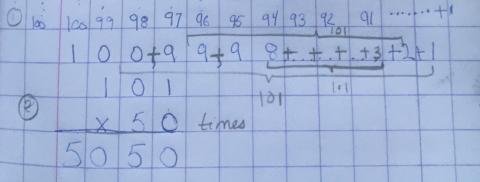 ① 100 100 99 98 97 96 95 94 93 92 91 ........ +1
101
1 0 0 + 9 9 + 9 8 + .. + .. + .. + 3 + 2 + 1
1 0 1 101 101
②
x 5 0 times
5 0 5 0